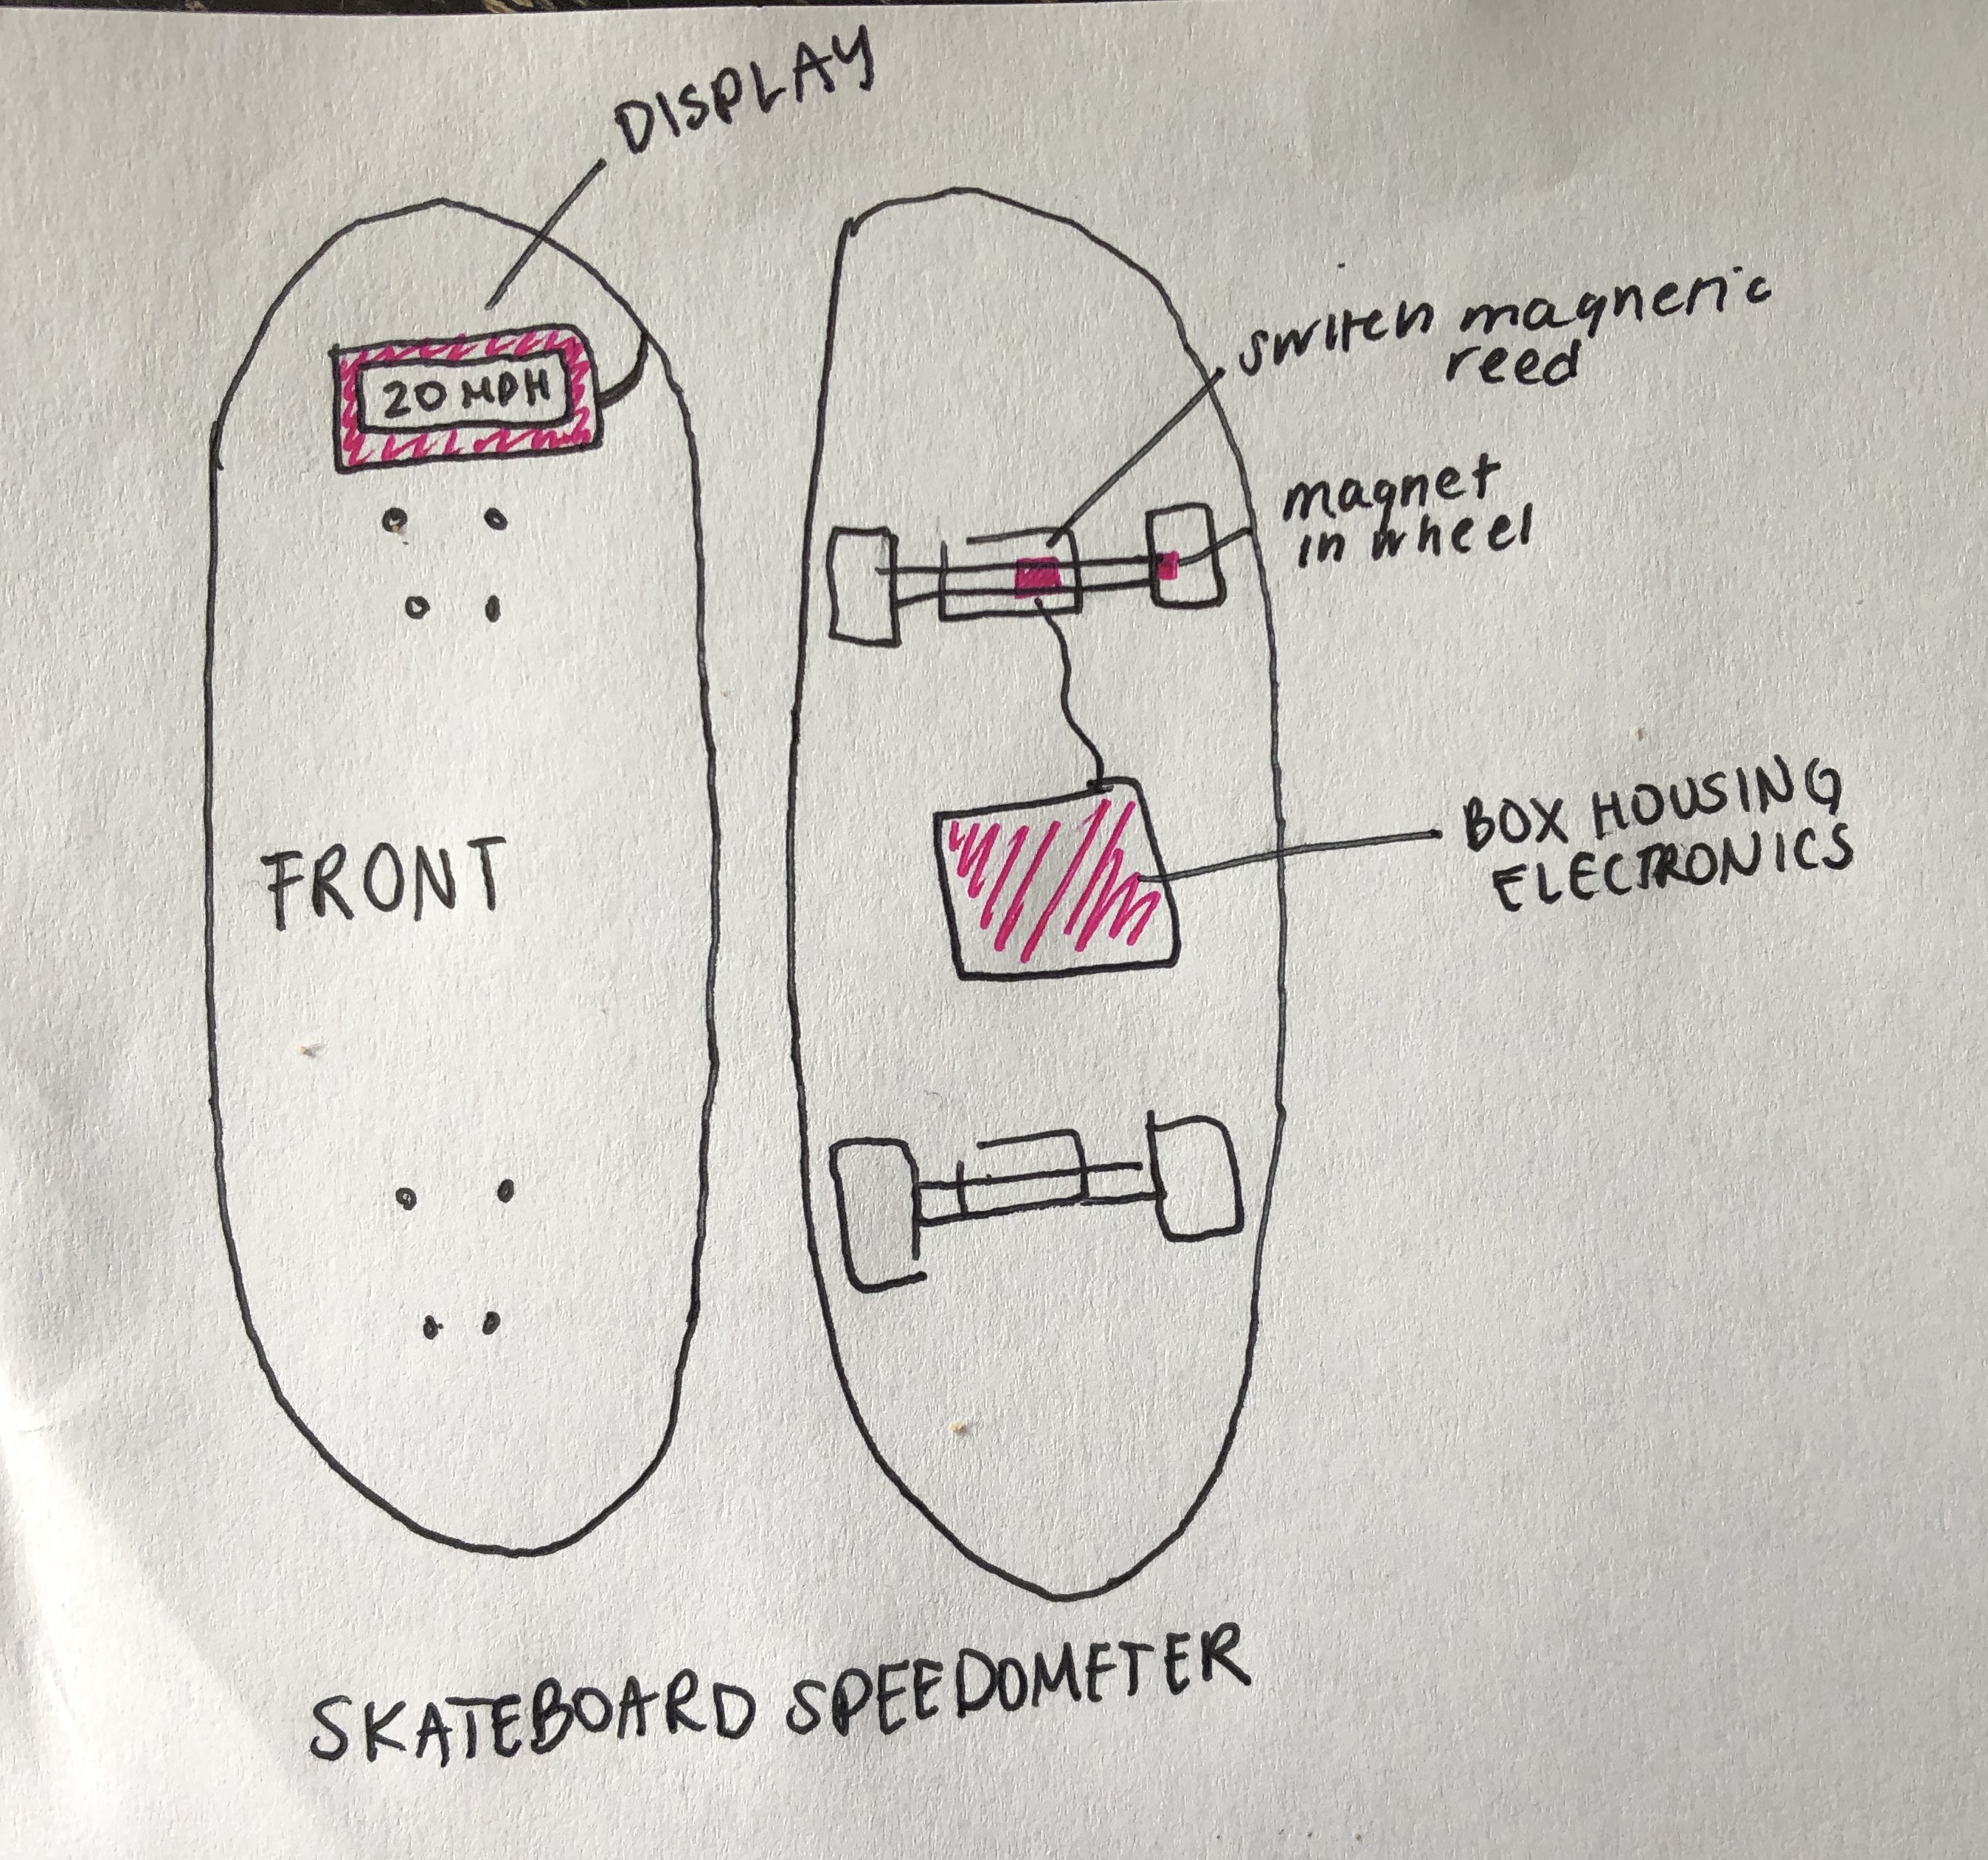 DISPLAY
20 MPH
switch magneric
reed
magnet
in wheel
FRONT
BOX HOUSING
ELECTRONICS
SKATEBOARD SPEEDOMETER